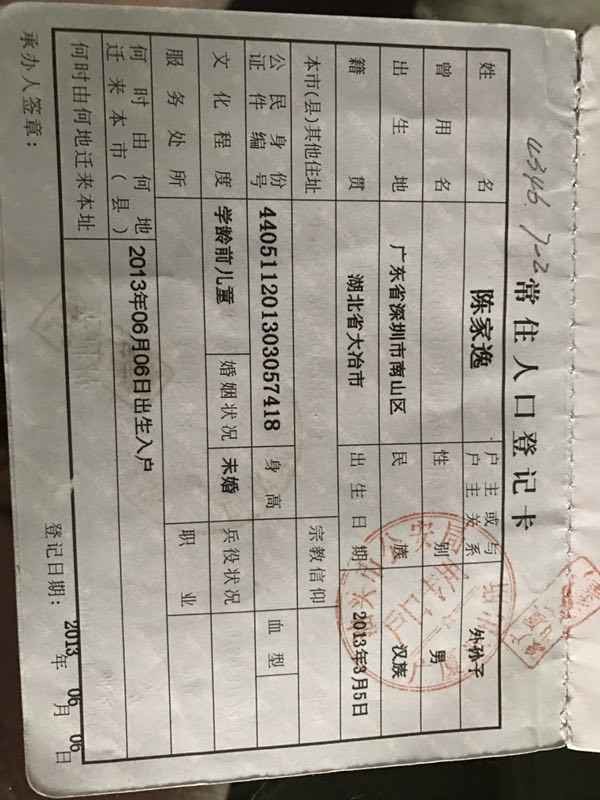 常住人口登记卡
姓名 陈家逸 户主或与户主关系 外孙子
曾用名 性别 男
出生地 广东省深圳市南山区 民族 汉族
籍贯 湖北省大冶市 出生日期 2013年3月5日
本市(县)其他住址 宗教信仰
公民身份证件编号 440511201303057418 身高 血型
文化程度 学龄前儿童 婚姻状况 未婚 兵役状况
服务处所 职业
何时由何地迁来本市(县) 2013年06月06日出生入户
何时由何地迁来本址
承办人签章: 登记日期: 2013年06月06日
户口专用